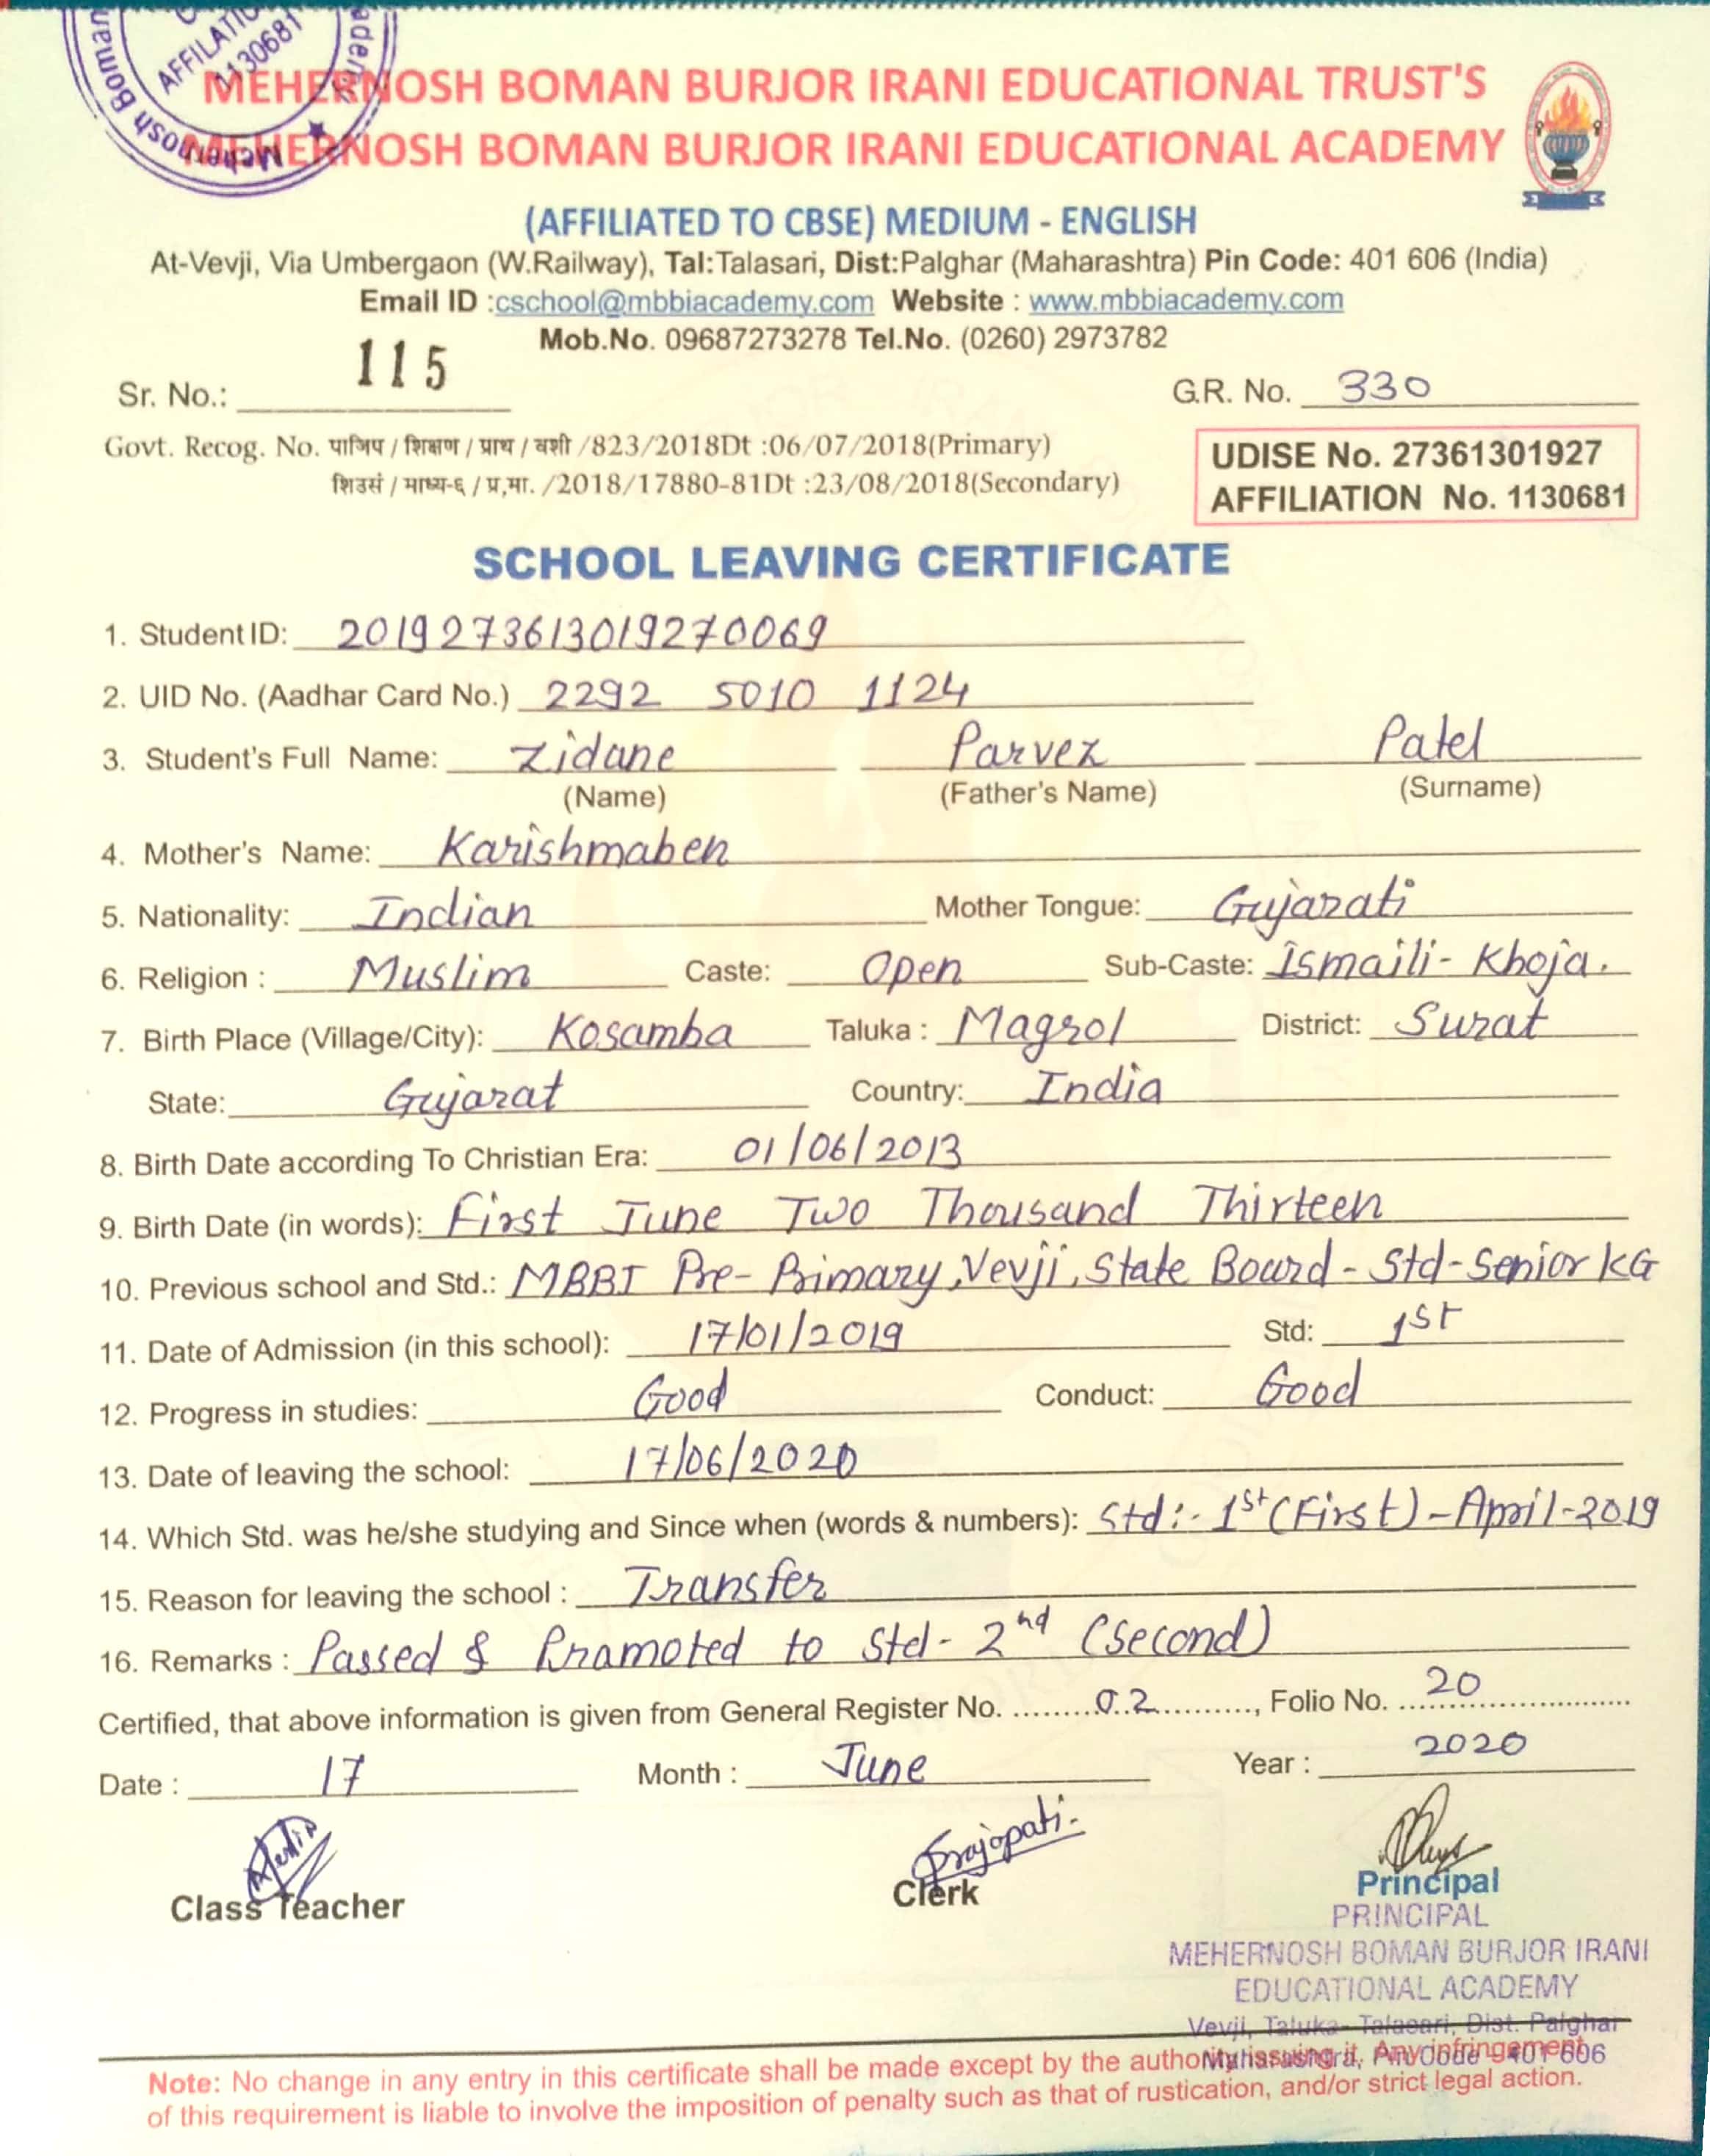 AFFILATION
1130681
Mehernosh Boman
MEHERNOSH BOMAN BURJOR IRANI EDUCATIONAL TRUST'S
MEHERNOSH BOMAN BURJOR IRANI EDUCATIONAL ACADEMY
(AFFILIATED TO CBSE) MEDIUM - ENGLISH
At-Vevji, Via Umbergaon (W.Railway), Tal:Talasari, Dist:Palghar (Maharashtra) Pin Code: 401 606 (India)
Email ID :cschool@mbbiacademy.com Website : www.mbbiacademy.com
Mob.No. 09687273278 Tel.No. (0260) 2973782
Sr. No.: 115 G.R. No. 330
Govt. Recog. No. पाजिप / शिक्षण / प्राथ / वशी /823/2018Dt :06/07/2018(Primary)
शिउसं / माध्य-६ / प्र,मा. /2018/17880-81Dt :23/08/2018(Secondary)
UDISE No. 27361301927
AFFILIATION No. 1130681
SCHOOL LEAVING CERTIFICATE
1. Student ID: 2019273613019270069
2. UID No. (Aadhar Card No.) 2292 5010 1124
3. Student's Full Name: Zidane Parvez Patel
(Name) (Father's Name) (Surname)
4. Mother's Name: Karishmaben
5. Nationality: Indian Mother Tongue: Gujarati
6. Religion : Muslim Caste: Open Sub-Caste: Ismaili- Khoja.
7. Birth Place (Village/City): Kosamba Taluka : Magrol District: Surat
State: Gujarat Country: India
8. Birth Date according To Christian Era: 01/06/2013
9. Birth Date (in words): First June Two Thousand Thirteen
10. Previous school and Std.: MBBI Pre- Primary, Vevji, State Board - Std- Senior KG
11. Date of Admission (in this school): 17/01/2019 Std: 1st
12. Progress in studies: Good Conduct: Good
13. Date of leaving the school: 17/06/2020
14. Which Std. was he/she studying and Since when (words & numbers): Std:- 1st (First) - April-2019
15. Reason for leaving the school : Transfer
16. Remarks : Passed & Pramoted to Std- 2nd (Second)
Certified, that above information is given from General Register No. ..........02............, Folio No. 20
Date : 17 Month : June Year : 2020
Prajapati.
Class Teacher Clerk Principal
PRINCIPAL
MEHERNOSH BOMAN BURJOR IRANI
EDUCATIONAL ACADEMY
Vevji, Taluka- Talasari, Dist. Palghar
Maharashtra, Pin Code - 401 606
Note: No change in any entry in this certificate shall be made except by the authority issuing it, Any infringement
of this requirement is liable to involve the imposition of penalty such as that of rustication, and/or strict legal action.